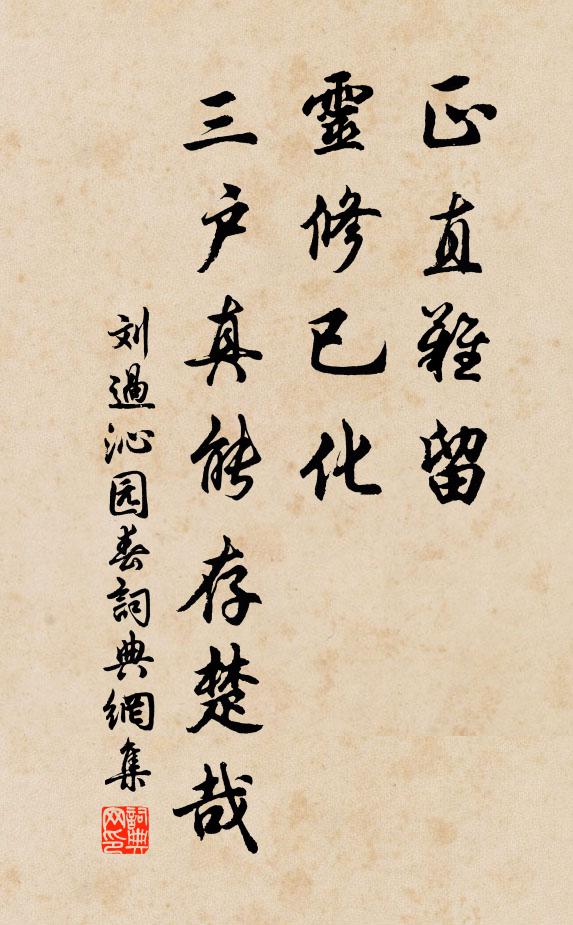 正直難留
靈修已化
三户真能存楚哉
刘過沁园春詞典網集
詞典网印